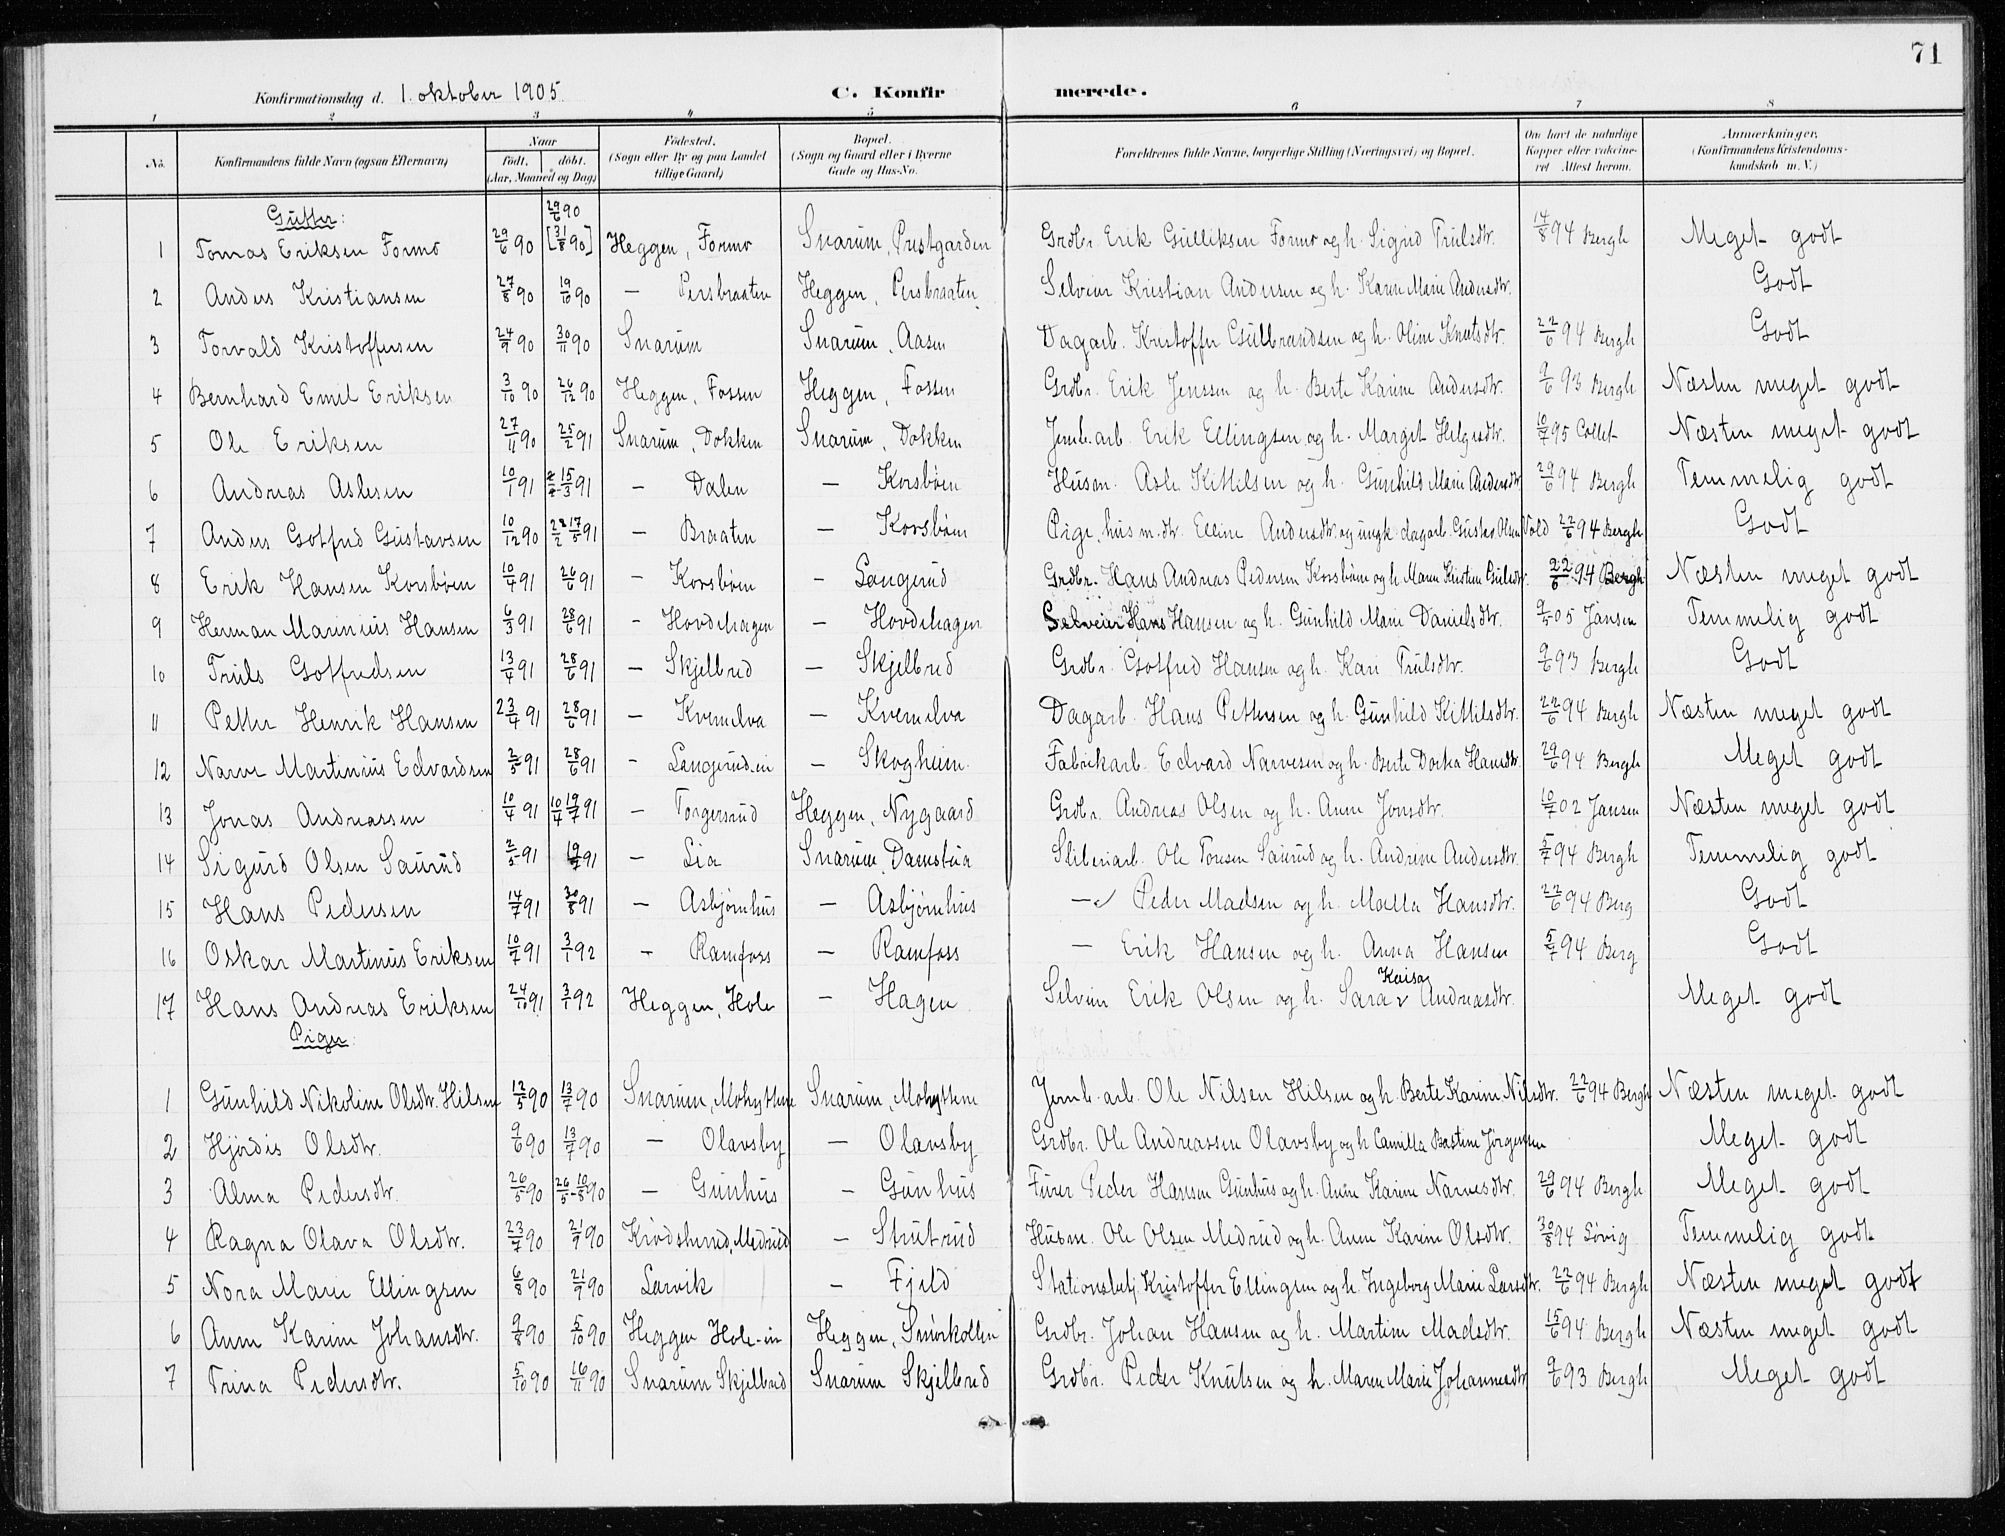 71
Konfirmationsdag d. 1. oktober 1905. C. Konfirmerede.
1 2 3 4 5 6 7 8
No. Konfirmandens fulde Navn (ogsaa Efternavn) Naar født. døbt. (Aar, Maaned og Dag) Fødested. (Sogn eller By og paa Landet tillige Gaard) Bopæl. (Sogn og Gaard eller i Byerne Gade og Hus-No. Forældrenes fulde Navne, borgerlige Stilling (Næringsvei) og Bopæl. Om havt de naturlige Kopper eller vakcineret Attest herom. Anmærkninger. (Konfirmandens Kristendomskundskab m. V.)
Gutter: 29/6 90
1 Tomas Eriksen Formo 29/6 90 [31/8 90] Heggen, Formo Snarum, Prestgarden Grdbr. Erik Gulliksen Formo og h. Sigrid Trulsdtr. 14/8 94 Bergh Meget godt
2 Anders Kristiansen 27/8 90 19/10 90 — Persbraaten Heggen, Persbraaten Selveier Kristian Andersen og h. Karen Marie Andersdtr. Godt
3 Torvald Kristoffersen 24/9 90 30/11 90 Snarum Snarum, Aasen Dagarb. Kristoffer Gulbrandsen og h. Oline Knutsdtr. 22/6 94 Bergh Godt
4 Bernhard Emil Eriksen 3/10 90 26/12 90 Heggen, Fossen Heggen, Fossen Grdbr. Erik Jenssen og h. Berte Karine Andersdtr. 9/6 93 Bergh Næsten meget godt
5 Ole Eriksen 27/11 90 25/2 91 Snarum, Dokken Snarum, Dokken Jernb. arb. Erik Ellingsen og h. Margit Helgesdtr. 10/7 95 Collet Næsten meget godt
6 Andreas Aslesen 10/1 91 15/3 91 — Dalen — Korsbøen Husm. Asle Kittelsen og h. Gunhild Marie Andersdtr. 29/6 94 Bergh Temmelig godt
7 Anders Gotfred Gustavsen 10/12 90 28/2 17/5 91 — Braaten — Korsbøen Pige, husm.dtr. Elline Andersdtr. og ungk. dagarb. Gustav Olsen Vold 22/6 94 Bergh Godt
8 Erik Hansen Korsbøen 10/4 91 26/6 91 — Korsbøen — Langerud Grdbr. Hans Andreas Pedersen Korsbøen og h. Maren Kirstine 22/6 94 Bergh Næsten meget godt
9 Herman Marinius Hansen 6/3 91 28/6 91 — Hovdehagen — Hovdehagen Selveier Hans Hansen og h. Gunhild Marie Danielsdtr. 9/5 05 Jansen Temmelig godt
10 Truls Gotfredsen 13/4 91 28/6 91 — Skjelbred — Skjelbred Grdbr. Gotfred Hansen og h. Kari Trulsdtr. 9/6 93 Bergh Godt
11 Petter Henrik Hansen 23/4 91 28/6 91 — Kvernelva — Kvernelva Dagarb. Hans Pettersen og h. Gunhild Kittilsdtr. 22/6 94 Bergh Næsten meget godt
12 Narve Martinius Edvardsen 2/5 91 28/6 91 — Langerud-ei — Skogheim Fabrikarb. Edvard Narvesen og h. Berte Dorthea Hansdtr. 29/6 94 Bergh Meget godt
13 Jonas Andreassen 10/4 91 10/4 19/7 91 — Torgersrud Heggen, Nygaard Grdbr. Andreas Olsen og h. Anne Jonsdtr. 10/7 02 Jansen Næsten meget godt
14 Sigurd Olsen Saurud 2/5 91 19/7 91 — Lia Snarum, Damstua Sliberiarb. Ole Tovsen Saurud og h. Andrine Andersdtr. 5/7 94 Bergh Temmelig godt
15 Hans Pedersen 14/7 91 30/8 91 — Asbjørnhus — Asbjørnhus — Peder Madsen og h. Malla Hansdtr. 22/6 94 Berg Godt
16 Oskar Martinius Eriksen 10/7 91 3/1 92 — Ramfoss — Ramfoss — Erik Hansen og h. Anna Hansen 5/7 94 Berg Godt
17 Hans Andreas Eriksen 24/10 91 3/1 92 Heggen, Hole — Hagen Selveier Erik Olsen og h. Sara Kaisa Andreasdtr. Meget godt
Piger:
1 Gunhild Nikoline Olsdtr. Hilsen 12/5 90 13/7 90 Snarum, Mohyttene Snarum, Mohyttene Jernb. arb. Ole Nilsen Hilsen og h. Berte Karine Nilsdtr. 22/6 94 Bergh Næsten meget godt
2 Hjørdis Olsdtr. 9/6 90 13/7 90 — Olavsby — Olavsby Grdbr. Ole Andreassen Olavsby og h. Camilla Bastine Jørgensen Meget godt
3 Alma Pedersdtr. 26/5 90 26/5-10/8 90 — Gunhus — Gunhus Peder Hansen Gunhus og h. Anne Karine Narvesdtr. 29/6 94 Bergh Meget godt
4 Ragna Olava Olsdtr. 23/7 90 21/9 90 Krødsherred, Medrud — Strutrud Husm. Ole Olsen Medrud og h. Anne Karine Olsdtr. 30/8 94 Sørig Temmelig godt
5 Nora Marie Ellingsen 6/8 90 21/9 90 Larvik — Fjeld Stationsbetj. Kristoffer Ellingsen og h. Ingeborg Marie Larsdtr. 22/6 94 Bergh Næsten meget godt
6 Anne Karine Johansdtr. 9/8 90 5/10 90 Heggen Hole-ie Heggen, Smørkollen Grdbr. Johan Hansen og h. Martine Madsdtr. 15/6 94 Bergh Næsten meget godt
7 Trina Pedersdtr. 5/10 90 16/11 90 Snarum Skjelbred Snarum Skjelbred Grdbr. Peder Knutsen og h. Maren Marie Johannesdtr 9/6 93 Bergh Meget godt